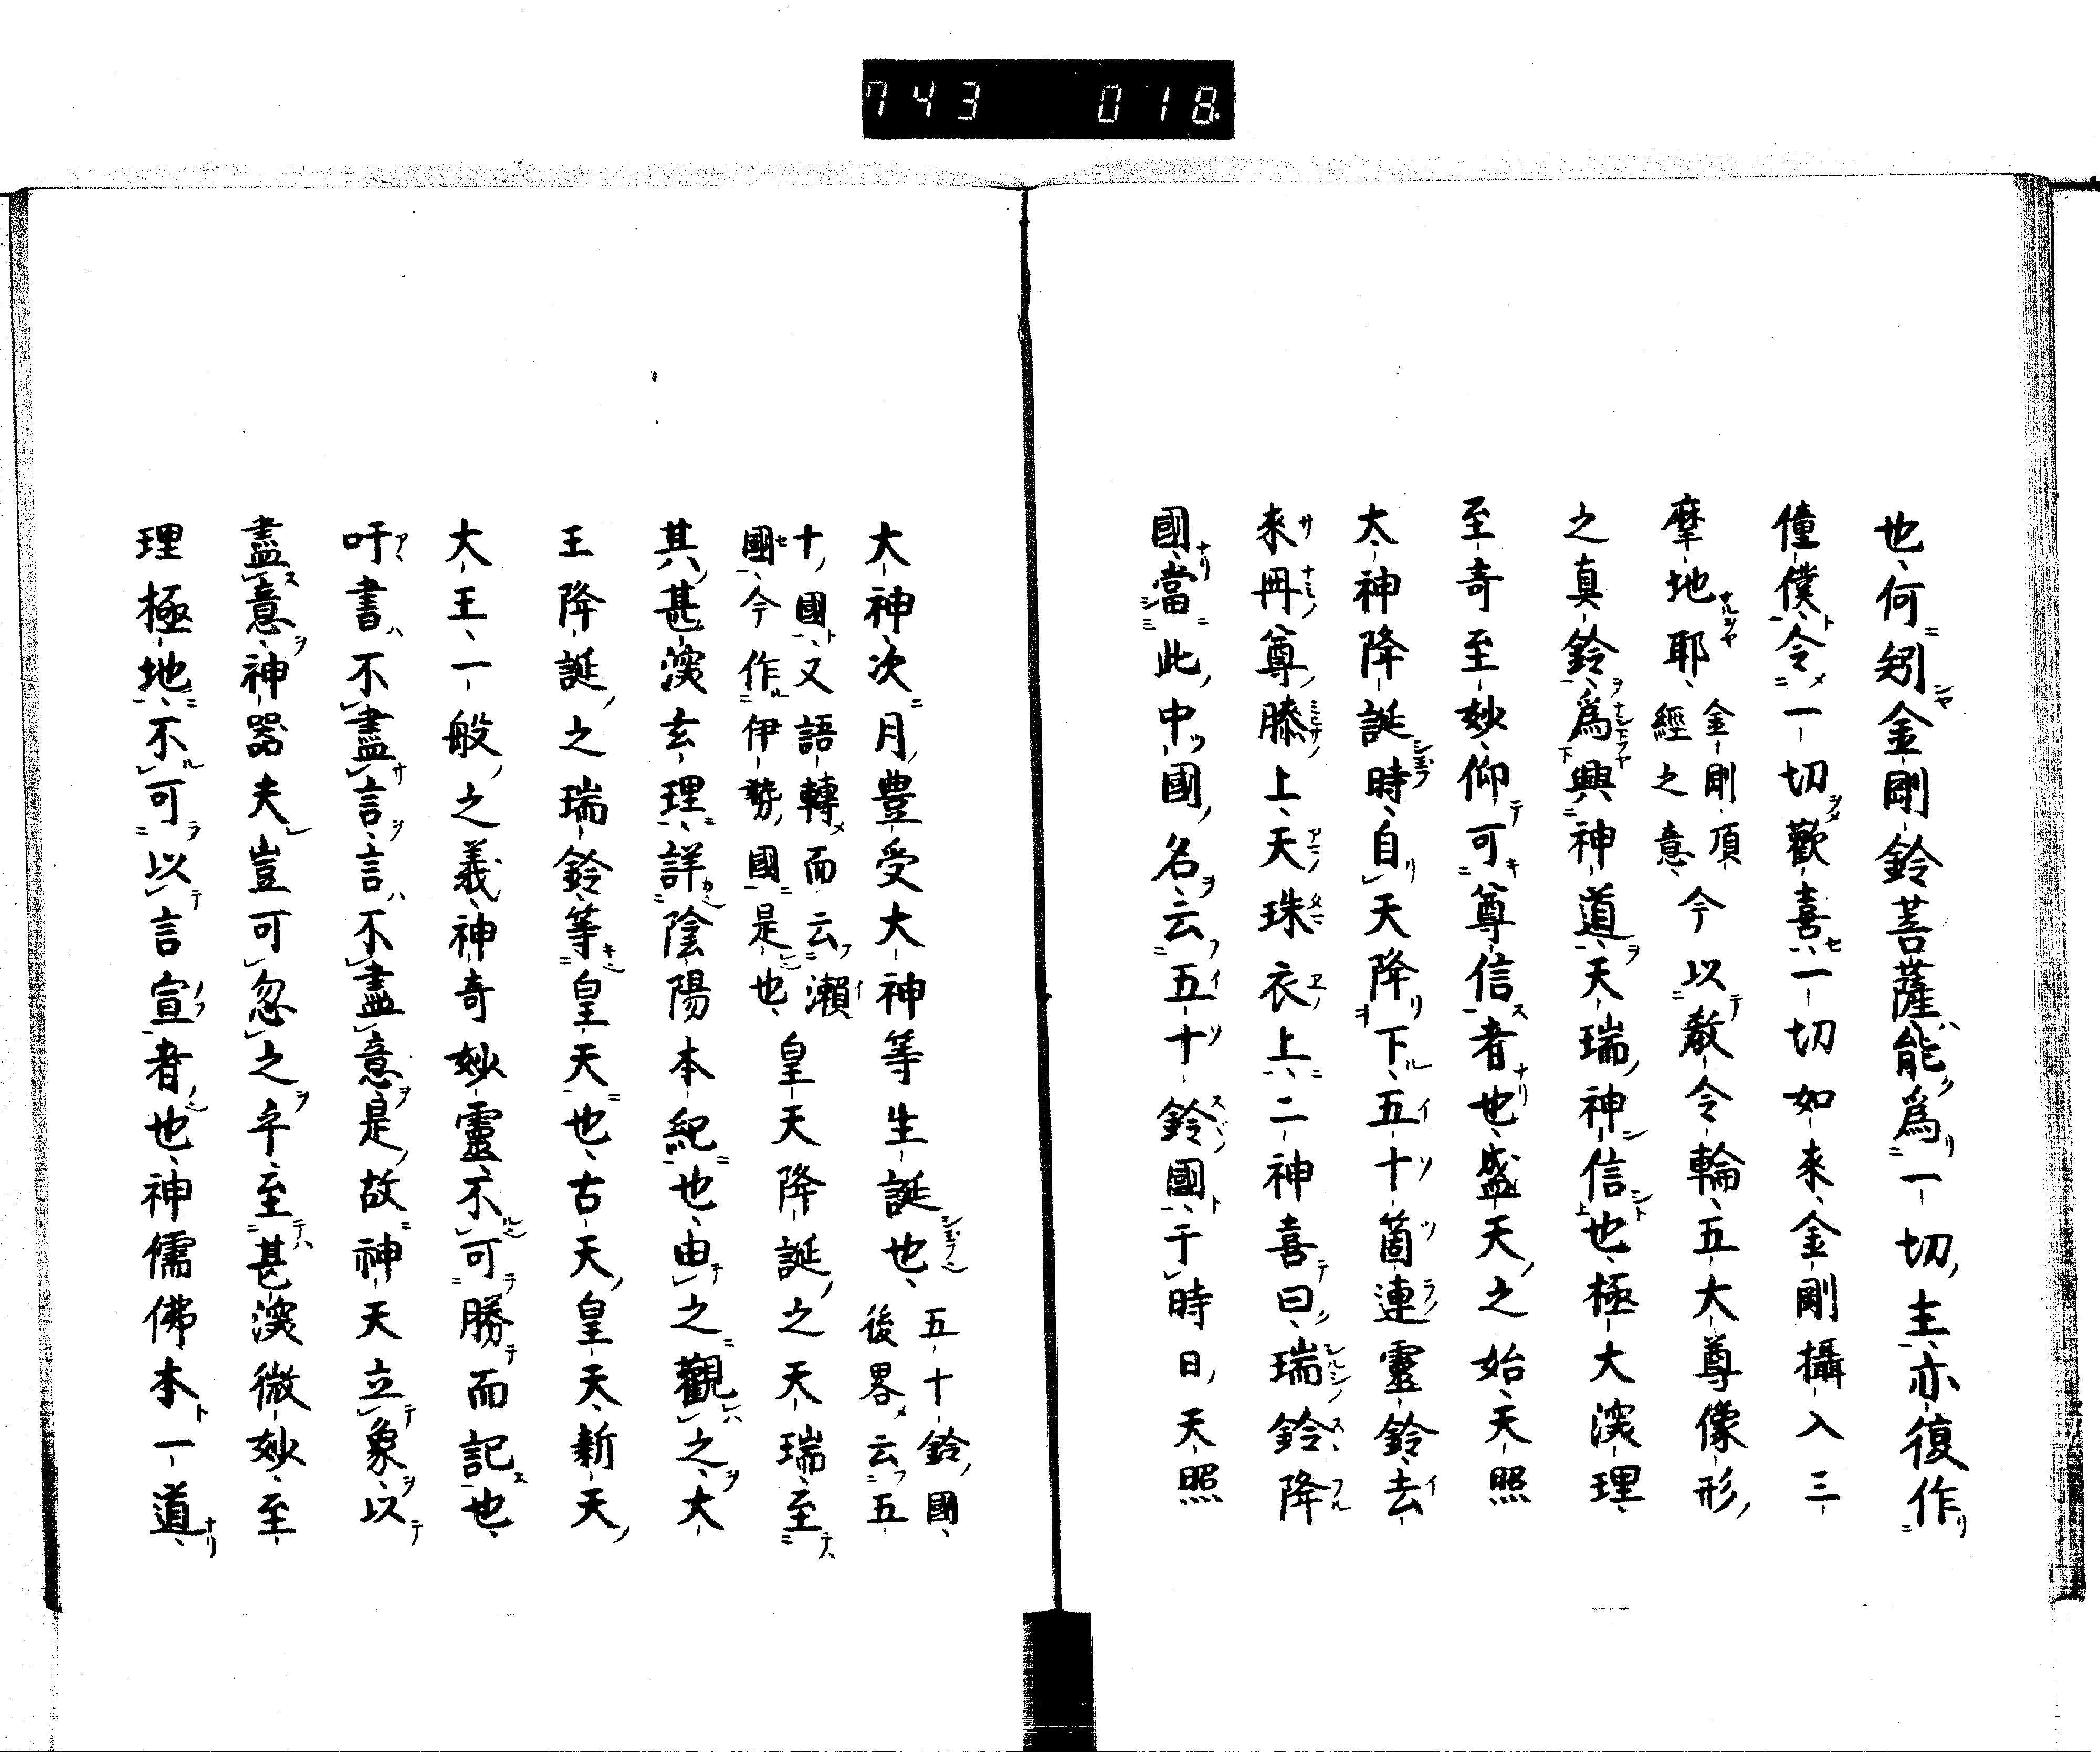 743 018
也何矧金剛鈴菩薩能爲一切主亦復作
僮僕令一切歡喜一切如來金剛攝入三
摩地耶 金剛頂經之意 今以教令輪五大尊像形
之真鈴爲興神道天瑞神信也極大深理
至奇至妙仰可尊信者也盛天之始天照
太神降誕時自天降下五十箇連靈鈴去
來冊尊膝上天珠衣上二神喜曰瑞鈴降
國當此中國名云五十鈴國于時日天照
大神次月豊受大神等生誕也 五十鈴國後畧云五
十國又語轉而云瀨國今作伊勢國是也 皇天降誕之天瑞至
其甚深玄理詳陰陽本紀也由之觀之大
王降誕之瑞鈴等皇天也古天皇天新天
大王一般之義神奇妙靈不可勝而記也
吁書不盡言言不盡意是故神天立象以
盡意神器夫豈可忽之乎至甚深微妙至
理極地不可以言宣者也神儒佛本一道